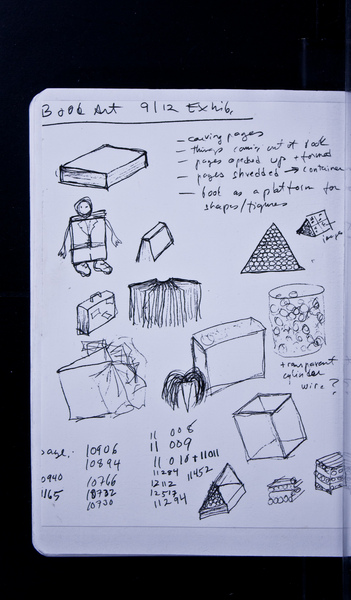 Book Art 9/12 Exhib.
— carving pages
— things coming out of book
— pages opened up + formed
— pages shredded → container
— book as a platform for
shapes/figures
images
transparent
cylinder
wire ?
page.
10906
10894
0940 10766
1165 10732
10730
11 008
11 009
11 010 + 11011
11284 11452
12112
12513
11294